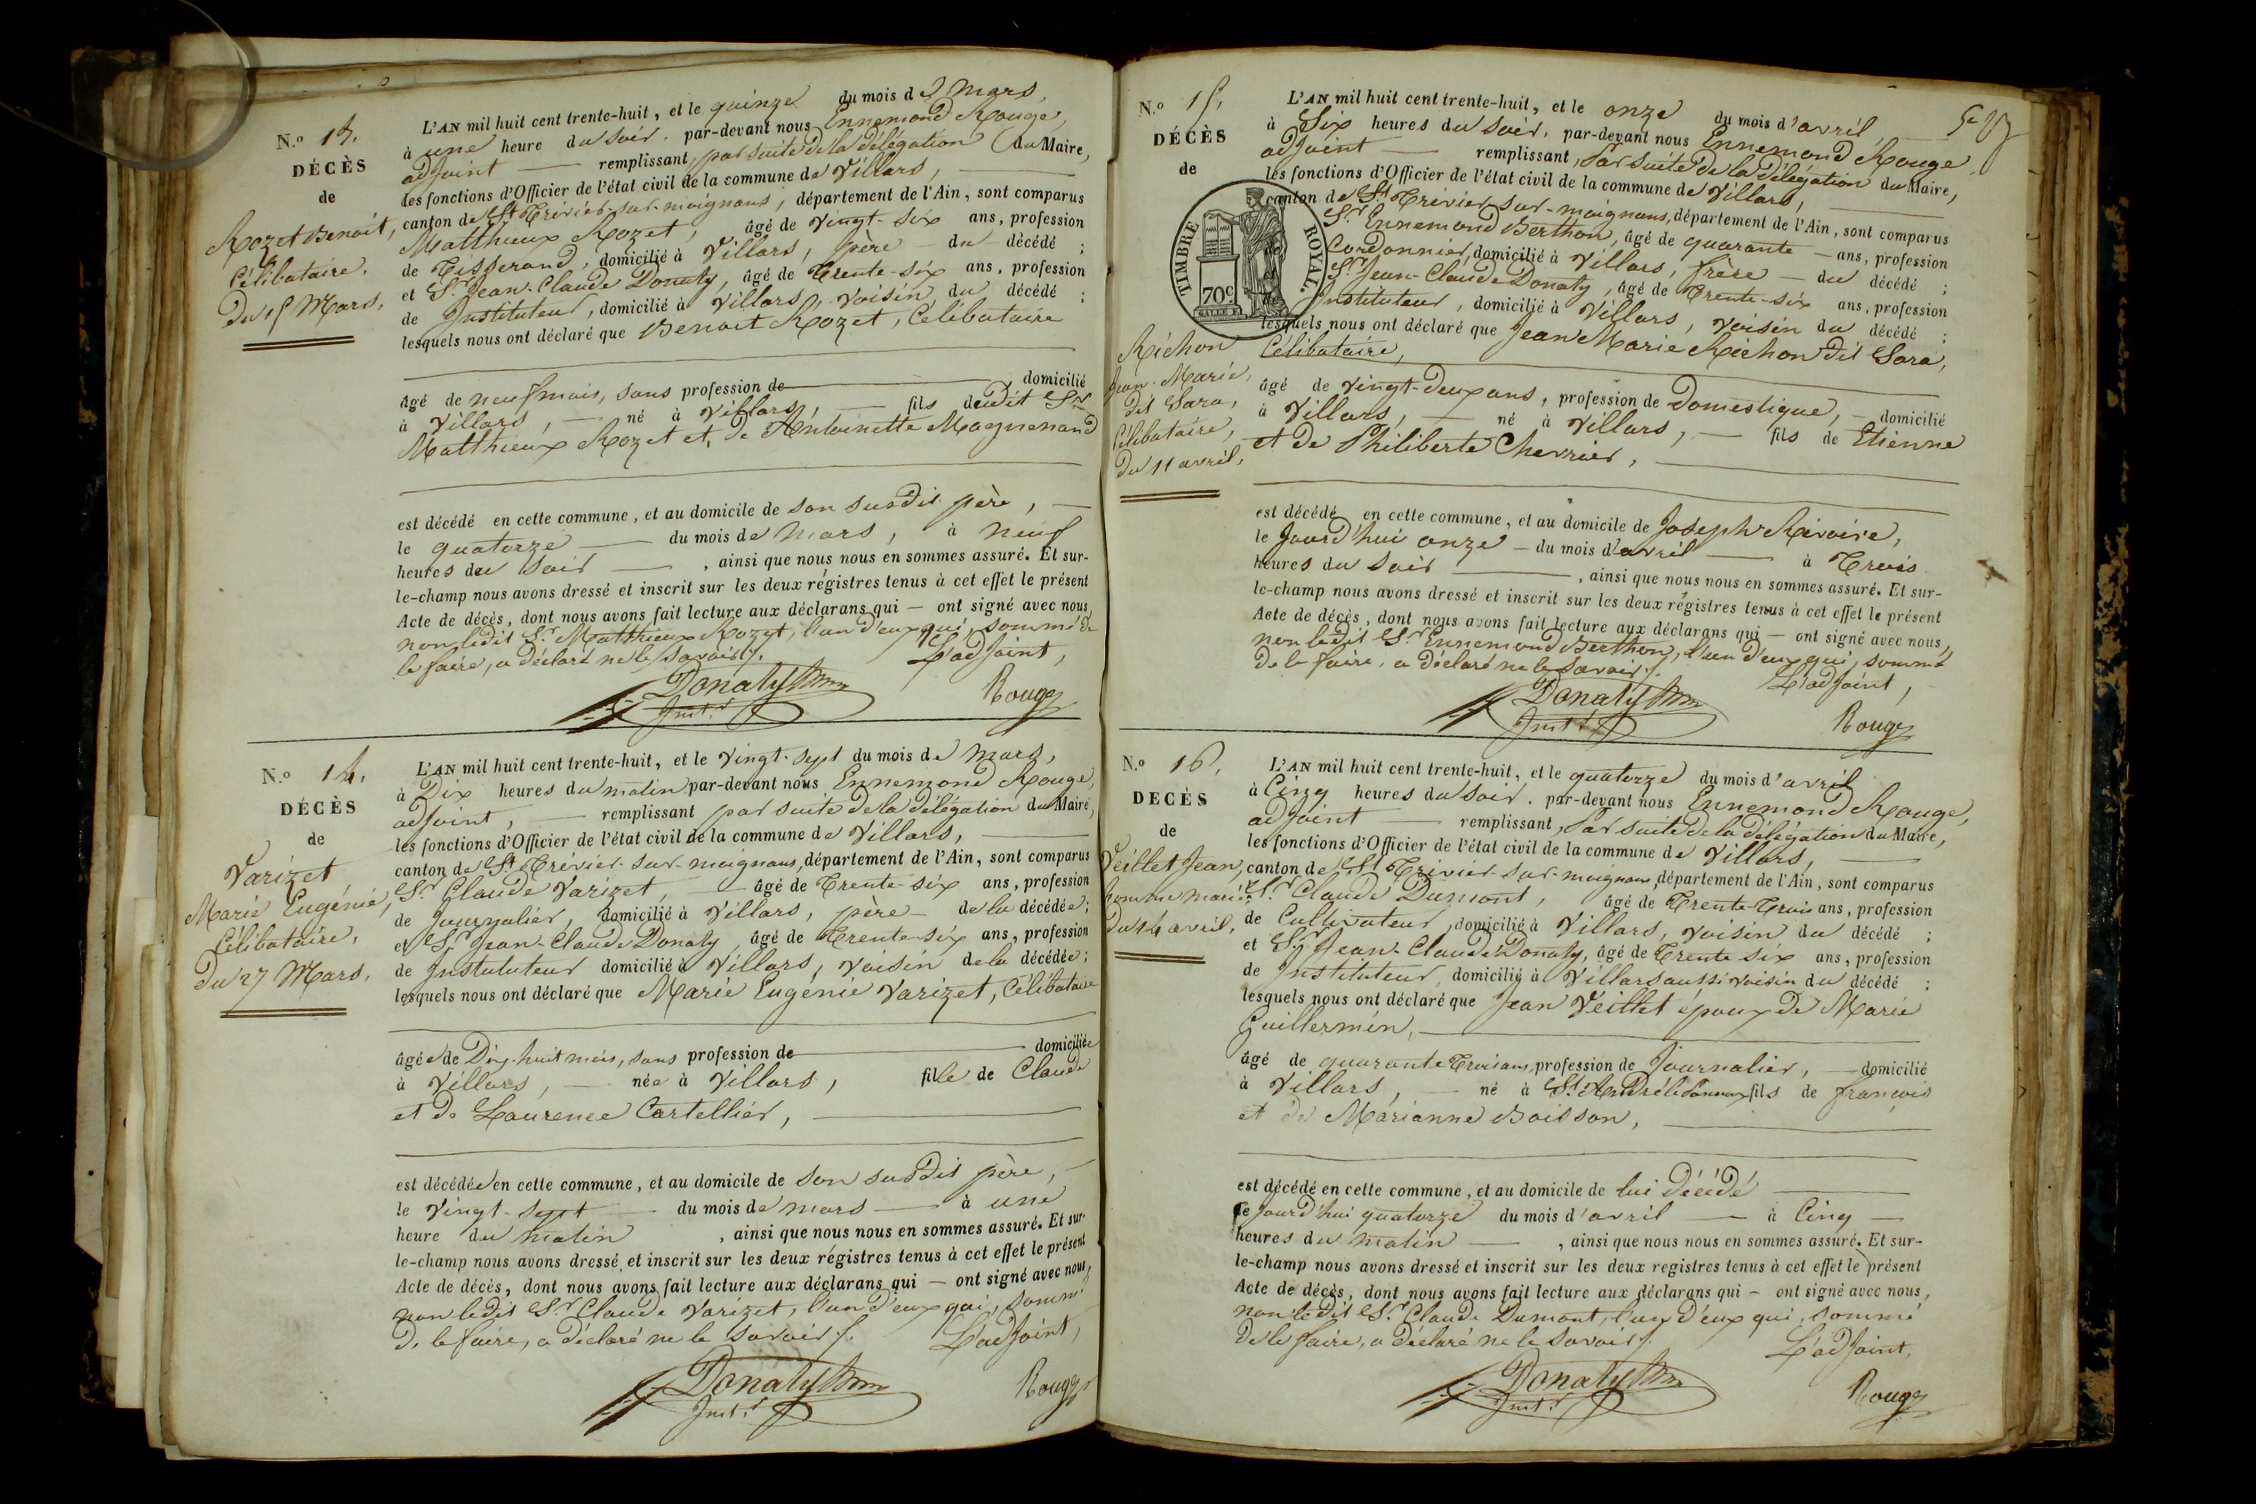 N.o 13.
DÉCÈS
de
Rozet Benoit,
Célibataire.
Du 15 Mars.
L'AN mil huit cent trente-huit, et le quinze du mois de Mars,
à une heure du soir. par-devant nous Ennemond Rouge,
adjoint remplissant, par suite de la délégation du Maire,
les fonctions d'Officier de l'état civil de la commune de Villars,
canton de St Trivier-sur-moignans, département de l'Ain, sont comparus
Matthieux Rozet, âgé de vingt-six ans, profession
de Tisserand, domicilié à Villars, père du décédé;
et Sr Jean-Claude Donaty, âgé de Trente-six ans, profession
de Instituteur, domicilié à Villars, voisin du décédé;
lesquels nous ont déclaré que Benoit Rozet, Célibataire
âgé de neuf mois, sans profession de domicilié
à Villars, né à Villars, fils dudit Sr
Matthieux Rozet et, de Antoinette Magnenand
est décédé en cette commune, et au domicile de son susdit père,
le quatorze du mois de mars, à neuf
heures du soir, ainsi que nous nous en sommes assuré. Et sur-
le-champ nous avons dressé et inscrit sur les deux régistres tenus à cet effet le présent
Acte de décès, dont nous avons fait lecture aux déclarans qui – ont signé avec nous,
non ledit Sr Matthieux Rozet, l'un d'eux qui, sommé de
le faire, a déclaré ne le savoir.
L'adjoint,
Donaty
Inst.r
Rouge
N.o 14.
DÉCÈS
de
Varizet
Marie Eugénie,
Célibataire.
Du 27 Mars.
L'AN mil huit cent trente-huit, et le vingt-sept du mois de mars,
à Dix heures du matin par-devant nous Ennemond Rouge,
adjoint, remplissant par suite de la délégation du Maire,
les fonctions d'Officier de l'état civil de la commune de Villars,
canton de St Trivier-sur-moignans, département de l'Ain, sont comparus
Sr Claude Varizet, âgé de Trente-six ans, profession
de Journalier, domicilié à Villars, père de la décédée;
et Sr Jean-Claude Donaty, âgé de Trente-six ans, profession
de Instututeur domicilié à Villars, voisin de la décédée;
lesquels nous ont déclaré que Marie Eugénie Varizet, Célibataire
âgée de Dix-huit mois, sans profession de domiciliée
à Villars, née à Villars, fille de Claude
et de Laurence Cartellier,
est décédée en cette commune, et au domicile de son susdit père,
le vingt-sept du mois de mars à une
heure du matin, ainsi que nous nous en sommes assuré. Et sur-
le-champ nous avons dressé et inscrit sur les deux régistres tenus à cet effet le présent
Acte de décès, dont nous avons fait lecture aux déclarans qui – ont signé avec nous,
non ledit Sr Claude Varizet, l'un d'eux qui, sommé
De le faire, a déclaré ne le savoir.
L'adjoint,
Donaty
Inst.r
Rouge
N.o 15.
DÉCÈS
de
TIMBRE ROYAL.
70c
Richon
Jean-Marie,
dit Sara,
Célibataire,
Du 11 avril,
L'AN mil huit cent trente-huit, et le onze du mois d'avril,
à Six heures du soir. par-devant nous Ennemond Rouge,
adjoint remplissant, Par suite de la délégation du Maire,
les fonctions d'Officier de l'état civil de la commune de Villars,
canton de St Trivier-sur-moignans, département de l'Ain, sont comparus
Sr Ennemond Berthon, âgé de quarante ans, profession
Cordonnier, domicilié à Villars, frère du décédé;
Sr Jean-Claude Donaty, âgé de Trente-six ans, profession
Instituteur, domicilié à Villars, voisin du décédé;
lesquels nous ont déclaré que Jean Marie Richon dit Sara,
Célibataire,
âgé de vingt-deux ans, profession de Domestique, domicilié
à Villars, né à Villars, fils de Etienne
et de Philiberte Chevrier,
est décédé en cette commune, et au domicile de Joseph Rivoire,
le Jourd'hui onze du mois d'avril à Trois
heures du soir, ainsi que nous nous en sommes assuré. Et sur-
le-champ nous avons dressé et inscrit sur les deux régistres tenus à cet effet le présent
Acte de décès, dont nous avons fait lecture aux déclarans qui – ont signé avec nous,
non ledit Sr Ennemond Berthon, l'un d'eux qui, sommé
de le faire, a déclaré ne le savoir.
L'adjoint,
Donaty
Inst.r
Rouge
N.o 16.
DÉCÈS
de
Veillet Jean,
homme marié.
Du 14 avril.
L'AN mil huit cent trente-huit, et le quatorze du mois d'avril
à Cinq heures du soir. par-devant nous Ennemond Rouge,
adjoint remplissant, Par suite de la délégation du Maire,
les fonctions d'Officier de l'état civil de la commune de Villars,
canton de St Trivier-sur-moignans, département de l'Ain, sont comparus
Sr Claude Dumont, âgé de Trente-Trois ans, profession
de Cultivateur, domicilié à Villars, voisin du décédé;
et Sr Jean-Claude Donaty, âgé de Trente-six ans, profession
de Instituteur, domicilié à Villars aussi voisin du décédé;
lesquels nous ont déclaré que Jean Veillet époux de Marie
Guillermin,
âgé de quarante Trois ans, profession de Journalier, domicilié
à Villars, né à St André le Panoux fils de françois
et de Marianne Boisson,
est décédé en cette commune, et au domicile de lui Décédé
ce jourd'hui quatorze du mois d'avril à Cinq
heures du matin, ainsi que nous nous en sommes assuré. Et sur-
le-champ nous avons dressé et inscrit sur les deux registres tenus à cet effet le présent
Acte de décès, dont nous avons fait lecture aux déclarans qui – ont signé avec nous,
non ledit Sr Claude Dumont, l'un d'eux qui, sommé
De le faire, a déclaré ne le savoir.
L'adjoint,
Donaty
Inst.r
Rouge